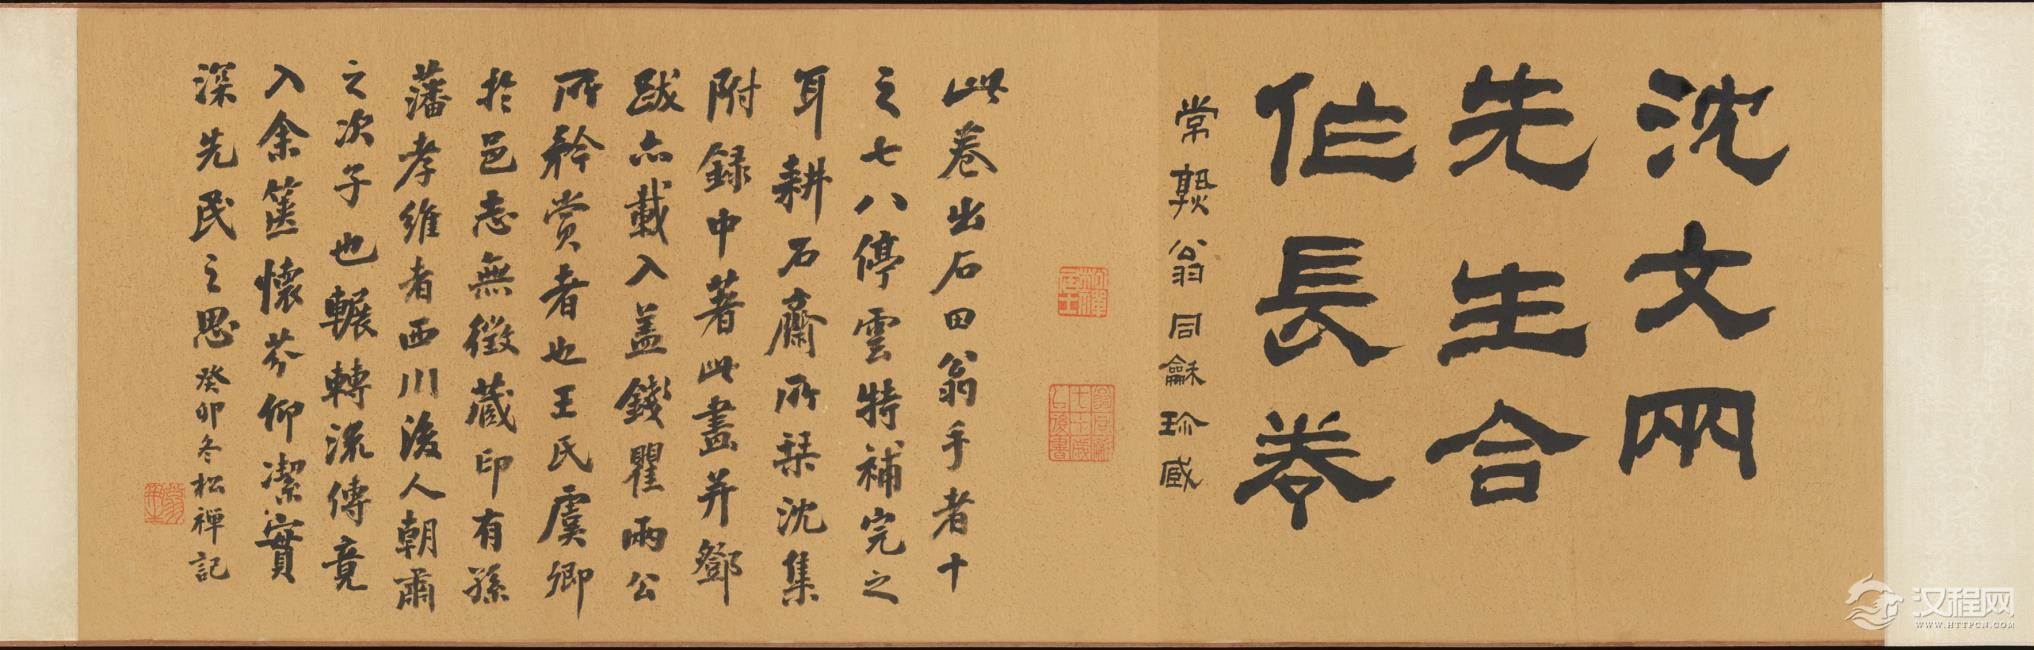 沈文兩
先生合
作長卷
常熟翁同龢珍藏
此卷出石田翁手者十
之七八停雲特補完之
耳耕石齋所栞沈集
附録中著此畫并鄧
跋亦載入蓋錢瞿兩公
所矜賞者也王氏虞卿
於邑志無徵藏印有孫
藩孝維者西川後人朝肅
之次子也輾轉流傳竟
入余篋懷芬仰潔實
深先民之思癸卯冬松禪記
汉程网
WWW.HTTPCN.COM